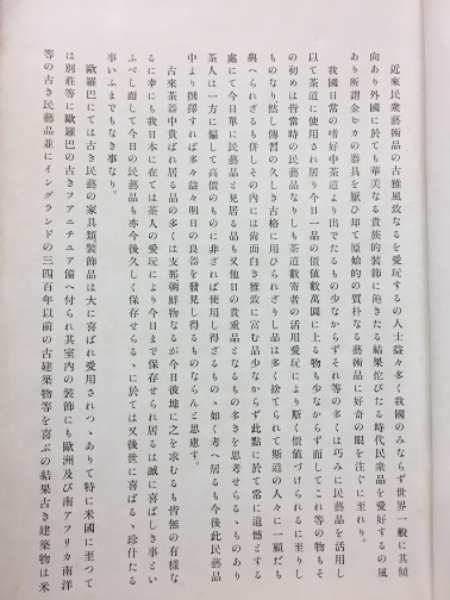 近來民衆藝術品の古雅風致なるを愛玩するの人士益々多く我國のみならず世界一般に其傾
向あり外國に於ても華美なる貴族的裝飾に飽きたる結果佗びたる時代民衆品を愛好するの風
あり所謂金ピカの器具を厭ひ却て原始的の質朴なる藝術品に好奇の眼を注ぐに至れり。
我國日常の嗜好中茶道より出でたるもの少なからずそれ等の多くは巧みに民藝品を活用し
以て茶道に使用され居り今日一品の價値數萬圓に上る物も少なからず而してこれ等の物もそ
の初めは皆當時の民藝品なりしも茶道數寄者の活用愛玩により斯く價値づけられるに至りし
ものなり然し傳習の久しき古格に用ひられざりし品は多く捨てられて斯道の人々に一顧だも
與へられざるも併しその內には尙面白き雅致に富む品少なからず此點に於て常に遺憾とする
處にて今日單に民藝品と見居る品も又他日の貴重品となるもの多きを思考せらるゝものあり
茶人は一方に偏して高價のものに非ざれば使用し得ざるものゝ如く考へ居るも今後此民藝品
中より撰擇すれば多々益々明日の良器を發見し得るものならんと思慮す。
古來茶器中貴ばれ居る品の多くは支那朝鮮物なるが今日彼地に之を求むるも皆無の有樣な
るに幸にも我日本に在ては茶人の愛玩により今日まで保存せられ居るは誠に喜ばしき事とい
ふべし而して今日の民藝品も亦今後久しく保存せらるゝに於ては又後世に喜ばるゝ珍什たる
事いふまでもなき事なり。
歐羅巴にては古き民藝の家具類裝飾品は大に喜ばれ愛用されつゝありて特に米國に至つて
は別莊等に歐羅巴の古きファニチュア備へ付られ其室內の裝飾にも歐洲及び南アフリカ南洋
等の古き民藝品並にイングランドの三四百年以前の古建築物等を喜ぶの結果古き建築物は米